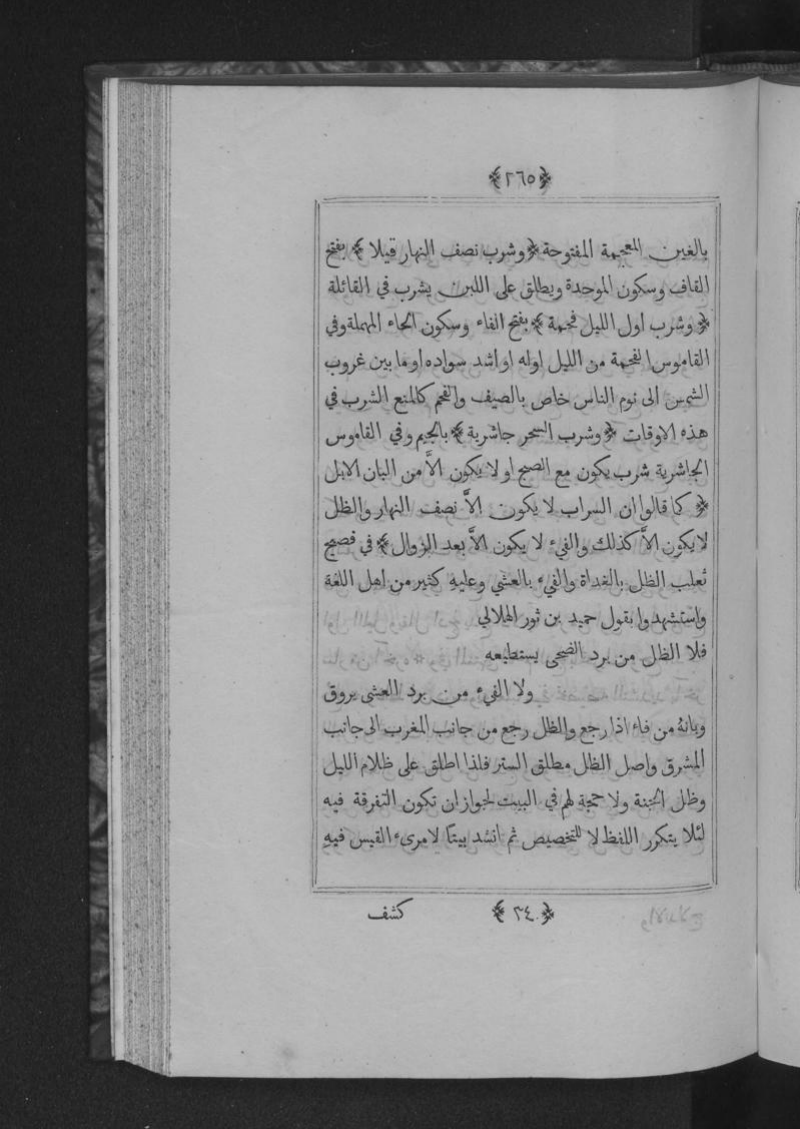 ﴿٢٦٥﴾
بالغين المعجمة المفتوحة ﴿وشرب نصف النهار قيلا﴾ بفتح
القاف وسكون الموحدة ويطلق على اللبن يشرب في القائلة
﴿وشرب اول الليل فحمة﴾ بفتح الفاء وسكون الحاء المهملة وفي
القاموس الفحمة من الليل اوله او اشد سواده او ما بين غروب
الشمس الى نوم الناس خاص بالصيف والفحم كالمنع الشرب في
هذه الاوقات ﴿وشرب السحر جاشرية﴾ بالجيم وفي القاموس
الجاشرية شرب يكون مع الصبح او لا يكون الاّ من البان الابل
﴿كما قالوا ان السراب لا يكون الاّ نصف النهار والظل
لا يكون الاّ كذلك والفيء لا يكون الاّ بعد الزوال﴾ في فصيح
ثعلب الظل بالغداة والفيء بالعشي وعليه كثير من اهل اللغة
واستشهدوا بقول حميد بن ثور الهلالي
فلا الظل من برد الضحى يستطيعه
ولا الفيء من برد العشى يروق
وبانهُ من فاء اذا رجع والظل رجع من جانب المغرب الى جانب
المشرق واصل الظل مطلق الستر فلذا اطلق على ظلام الليل
وظل الجنة ولا حجة لهم في البيت لجواز ان تكون التفرقة فيه
لئلا يتكرر اللفظ لا للتخصيص ثم انشد بيتًا لامرىء القيس فيهِ
﴿٣٤﴾ كشف